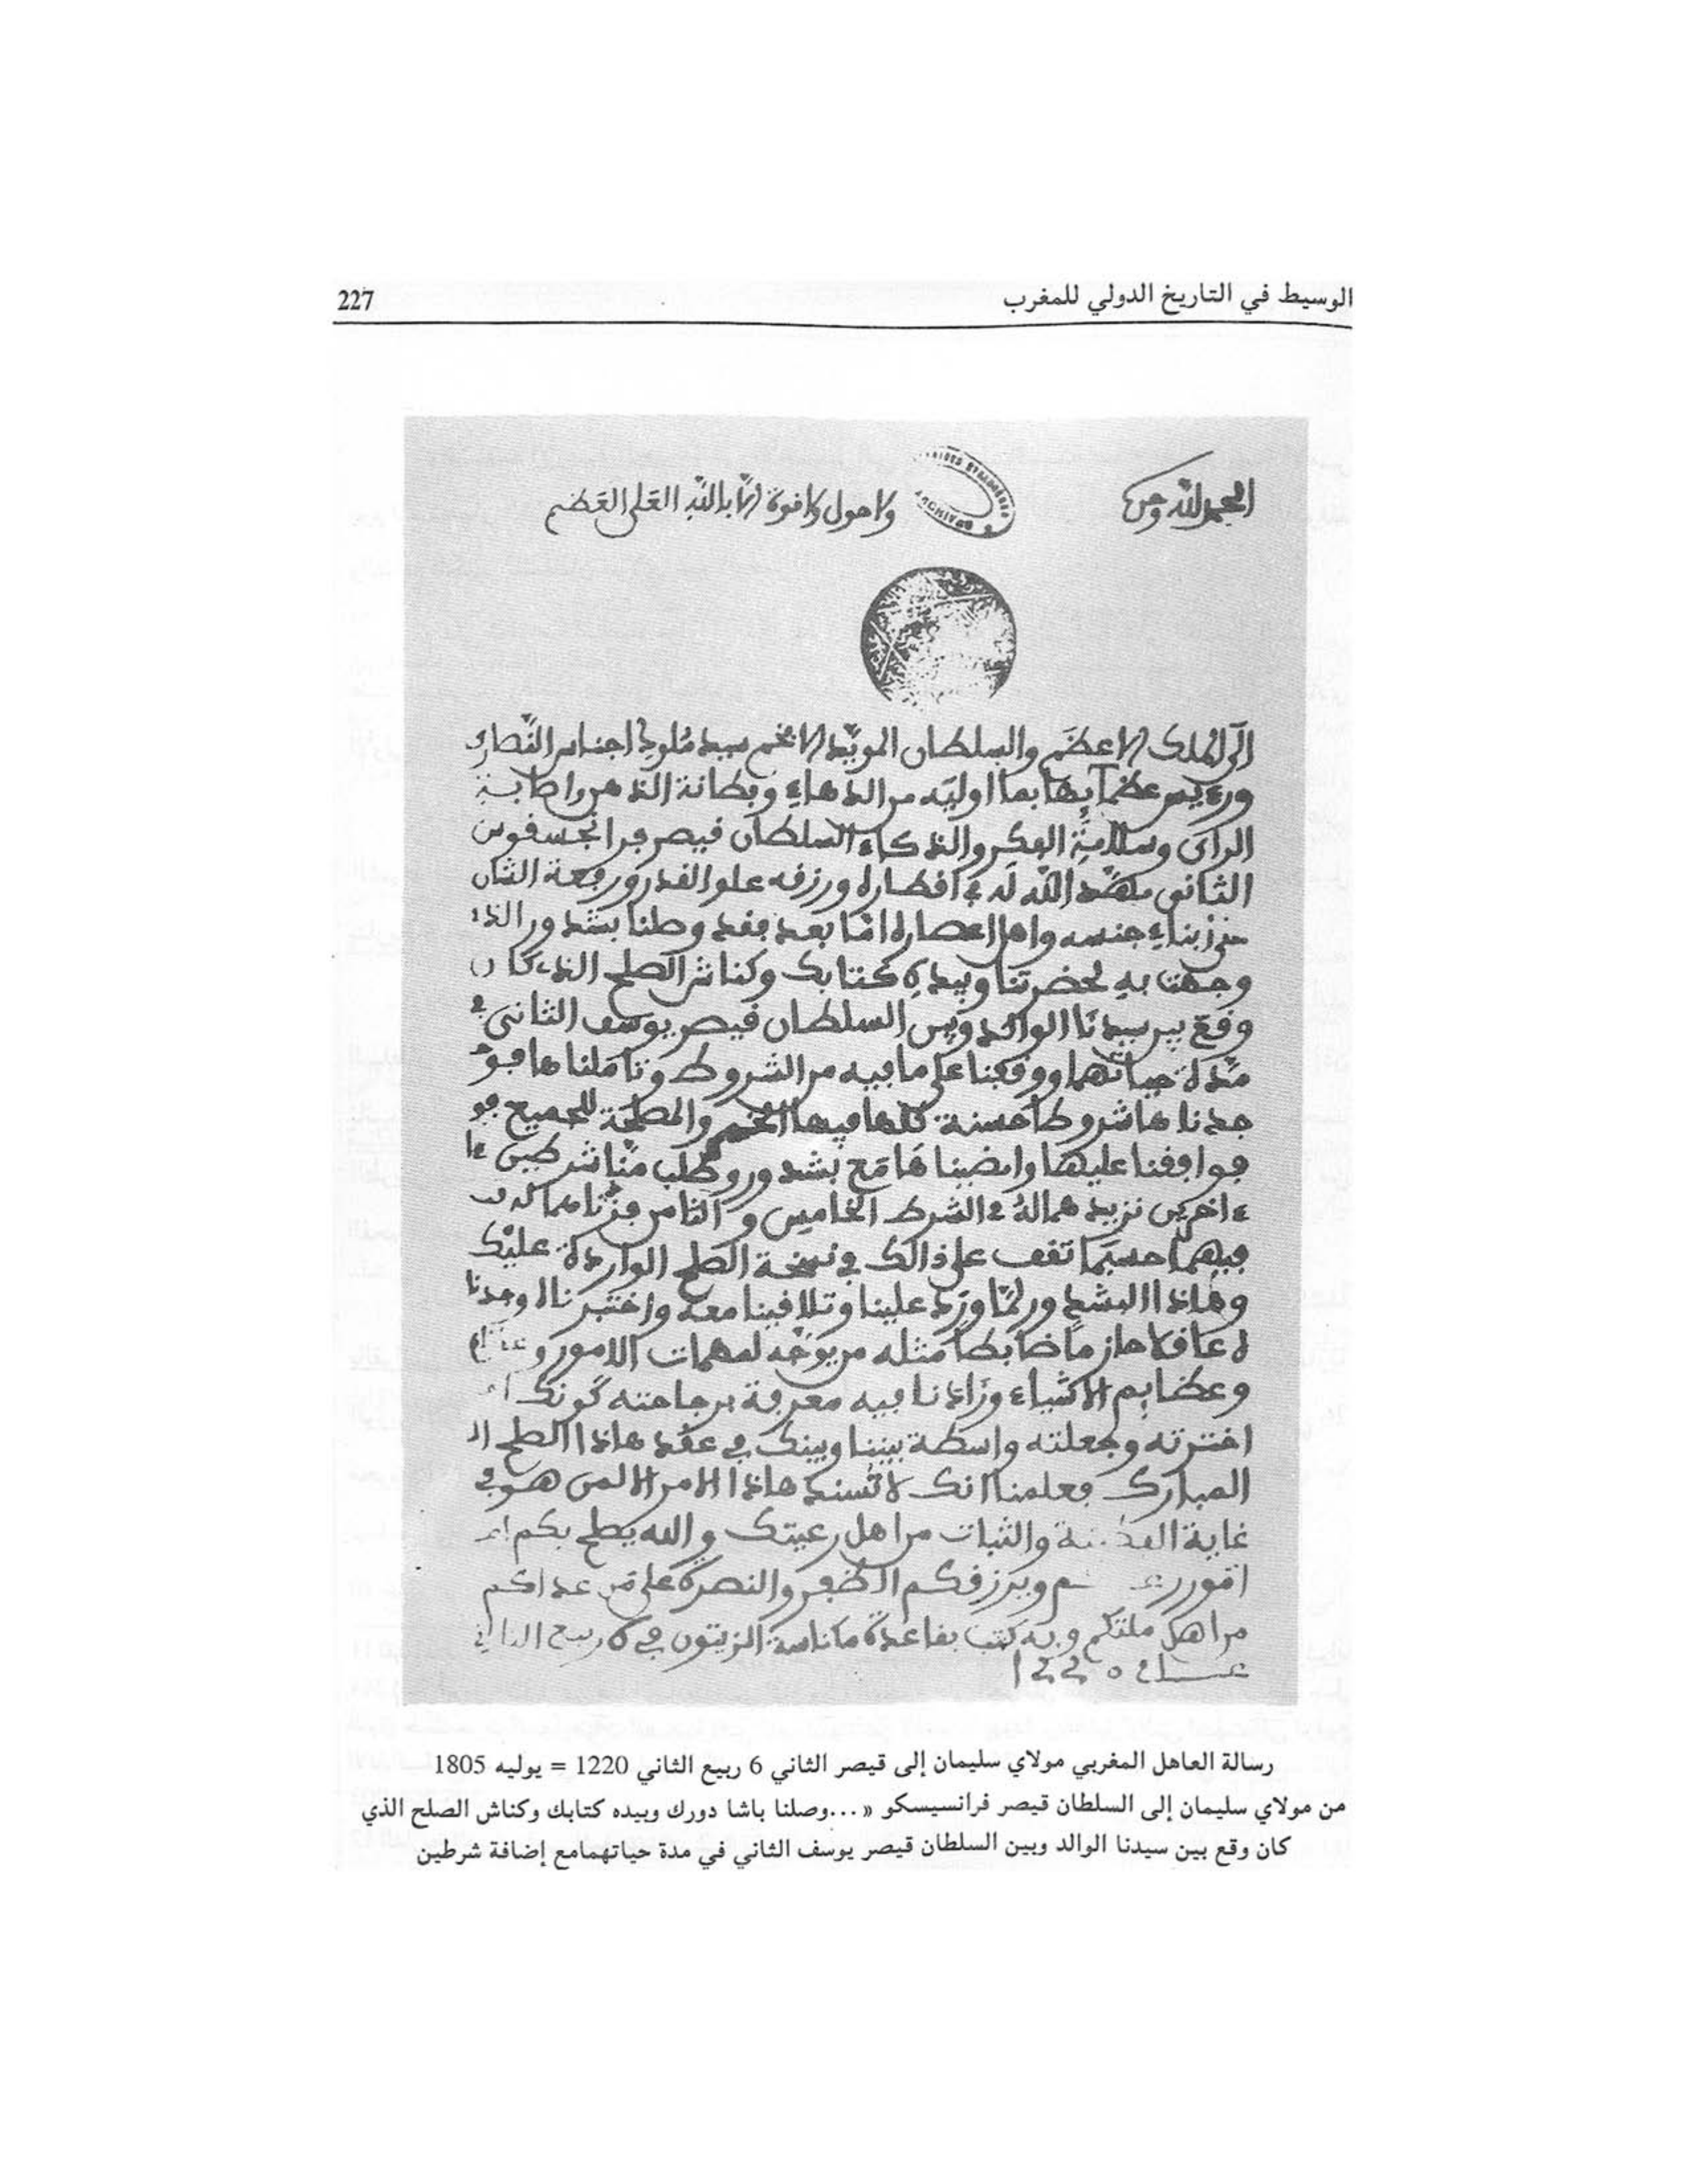 الوسيط في التاريخ الدولي للمغرب 227
الحمد لله وحده
ولا حول ولا قوة إلا بالله العلي العظيم
الى الملك الاعظم والسلطان المويد الافخم سيد ملوك اجناس النصارى
ورءيس عظمآيها بما اوليه من الدهاء وبطانة الذهن واصابة
الراى وسلامة الفكر والذكاء السلطان قيصر فرانجسقوس
الثانى مهّد الله له في اقطاره ورزقه علو القدر ورفعة الشان
ابناء جنسه واهل اعصاره امّا بعد فقد وصلنا بشدور الذى
وجهت به لحضرتنا وبيده كتابك وكناش الصلح الذى كان
وقع بين سيدنا الوالد وبين السلطان قيصر يوسف الثانى في
مدة حياتهما ووقفنا على ما فيه من الشروط وتاملناها فو
جدناها شروطا حسنة كلها فيها الخير والمصلحة للجميع فو
فوافقنا عليها وامضيناها مع بشدور وطلب منّا شرطين
ءاخرين نزيدهما له في الشرط الخامس و الثامن فزدناهما له
فيهما حسبما تقف على ذالك في نسخة الصلح الواردة عليك
وهاذا البشدور لمّا ورد علينا وتلاقينا معه واختبرناه وجدنا
ه عاقلا حازما ضابطا مثله من يوجّه لمهمات الامور
وعظايم الاشياء وزادنا فيه معرفة برجاحته كونك
اخترته وجعلته واسطة بيننا وبينك في عقد هاذا الصلح
المبارك فعلمنا انك لا تسند هاذا الامر الا لمن هو في
غاية والثبات من اهل رعيتك والله يصلح بكم
ويرزقكم الظفر والنصرة على من عداكم
من اهل ملتكم وبه كتب بقاعدة مكناسة الزيتون في 6 ربيع الثاني
عــام 1220
رسالة العاهل المغربي مولاي سليمان إلى قيصر الثاني 6 ربيع الثاني 1220 = يوليه 1805
من مولاي سليمان إلى السلطان قيصر فرانسيسكو «...وصلنا باشا دورك وبيده كتابك وكناش الصلح الذي
كان وقع بين سيدنا الوالد وبين السلطان قيصر يوسف الثاني في مدة حياتهمامع إضافة شرطين